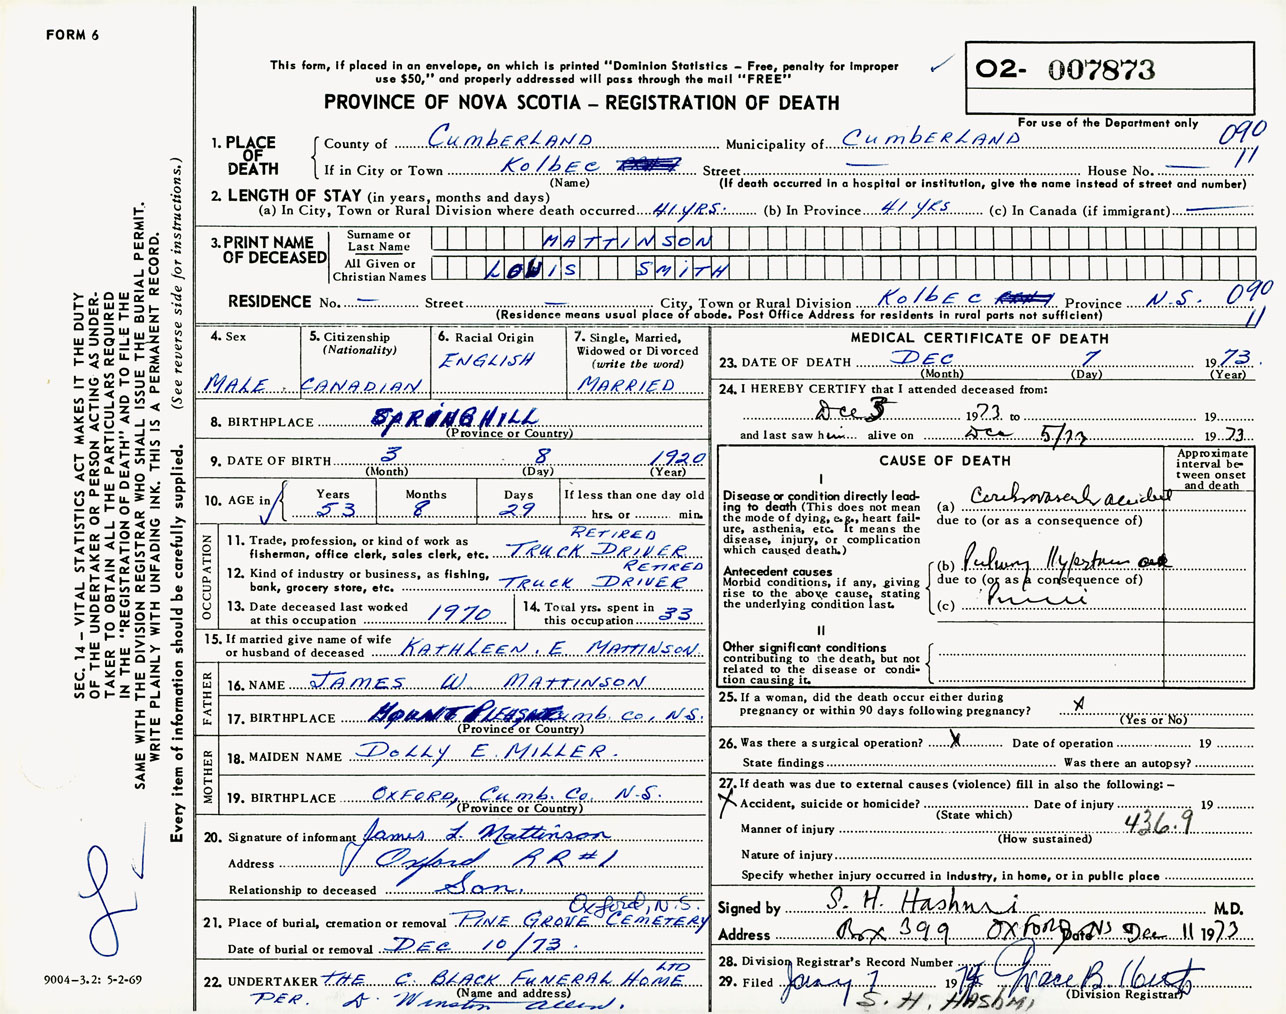 FORM 6
This form, if placed in an envelope, on which is printed "Dominion Statistics – Free, penalty for improper
use $50," and properly addressed will pass through the mail "FREE"
PROVINCE OF NOVA SCOTIA – REGISTRATION OF DEATH
02- 007873
For use of the Department only
SEC. 14 – VITAL STATISTICS ACT MAKES IT THE DUTY
OF THE UNDERTAKER OR PERSON ACTING AS UNDER-
TAKER TO OBTAIN ALL THE PARTICULARS REQUIRED
IN THE "REGISTRATION OF DEATH" AND TO FILE THE
SAME WITH THE DIVISION REGISTRAR WHO SHALL ISSUE THE BURIAL PERMIT.
WRITE PLAINLY WITH UNFADING INK. THIS IS A PERMANENT RECORD.
Every item of information should be carefully supplied. (See reverse side for instructions.)
1. PLACE OF DEATH
County of CUMBERLAND Municipality of CUMBERLAND 090
If in City or Town KOLBEC Street — House No. — 11
(Name) (If death occurred in a hospital or institution, give the name instead of street and number)
2. LENGTH OF STAY (in years, months and days)
(a) In City, Town or Rural Division where death occurred 41 YRS. (b) In Province 41 YRS (c) In Canada (if immigrant) —
3. PRINT NAME OF DECEASED
Surname or Last Name MATTINSON
All Given or Christian Names LOUIS SMITH
RESIDENCE No. — Street — City, Town or Rural Division KOLBEC Province N.S. 090
(Residence means usual place of abode. Post Office Address for residents in rural parts not sufficient) 11
4. Sex MALE
5. Citizenship (Nationality) CANADIAN
6. Racial Origin ENGLISH
7. Single, Married, Widowed or Divorced (write the word) MARRIED
8. BIRTHPLACE SPRINGHILL
(Province or Country)
9. DATE OF BIRTH 3 8 1920
(Month) (Day) (Year)
10. AGE in Years 53 Months 8 Days 29 If less than one day old hrs. or min.
OCCUPATION
11. Trade, profession, or kind of work as fisherman, office clerk, sales clerk, etc. RETIRED TRUCK DRIVER
12. Kind of industry or business, as fishing, bank, grocery store, etc. RETIRED TRUCK DRIVER
13. Date deceased last worked at this occupation 1970
14. Total yrs. spent in this occupation 33
15. If married give name of wife or husband of deceased KATHLEEN. E MATTINSON
FATHER
16. NAME JAMES W MATTINSON
17. BIRTHPLACE MOUNT PLEASANT Cumb. Co., N.S.
(Province or Country)
MOTHER
18. MAIDEN NAME DOLLY E. MILLER.
19. BIRTHPLACE OXFORD, Cumb. Co. N.S.
(Province or Country)
20. Signature of informant James L Mattinson
Address Oxford RR #1
Relationship to deceased Son.
21. Place of burial, cremation or removal PINE GROVE CEMETERY Oxford, N.S.
Date of burial or removal DEC 10/73.
22. UNDERTAKER THE C. BLACK FUNERAL HOME LTD
(Name and address)
PER. D. Winston Allen.
9004–3.2: 5-2-69
MEDICAL CERTIFICATE OF DEATH
23. DATE OF DEATH DEC 7 1973.
(Month) (Day) (Year)
24. I HEREBY CERTIFY that I attended deceased from:
Dec 3 1973 to 19
and last saw him alive on Dec 5/73 1973
CAUSE OF DEATH
Approximate interval between onset and death
I
Disease or condition directly lead-
ing to death (This does not mean
the mode of dying, e.g., heart fail-
ure, asthenia, etc. It means the
disease, injury, or complication
which caused death.)
(a) Cerebrovascular accident
due to (or as a consequence of)
Antecedent causes
Morbid conditions, if any, giving
rise to the above cause, stating
the underlying condition last.
(b)
due to (or as a consequence of)
(c)
II
Other significant conditions
contributing to the death, but not
related to the disease or condi-
tion causing it.
25. If a woman, did the death occur either during
pregnancy or within 90 days following pregnancy? X
(Yes or No)
26. Was there a surgical operation? X Date of operation 19
State findings Was there an autopsy?
27. If death was due to external causes (violence) fill in also the following: –
X Accident, suicide or homicide? Date of injury 19
(State which)
Manner of injury 436.9
(How sustained)
Nature of injury
Specify whether injury occurred in industry, in home, or in public place
Signed by S. H. Hashmi M.D.
Address Box 399 OXFORD NS Date Dec 11 1973
28. Division Registrar's Record Number
29. Filed 7 1974 Grace B.
(Division Registrar)
S. H. HASHMI